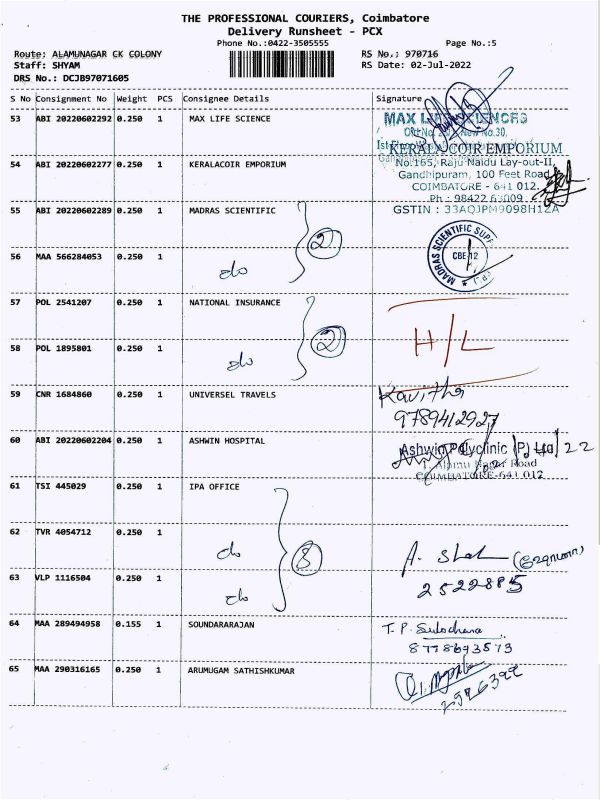 THE PROFESSIONAL COURIERS, Coimbatore
Delivery Runsheet - PCX
Phone No.:0422-3505555 Page No.:5
Route: ALAMUNAGAR CK COLONY RS No.: 970716
Staff: SHYAM RS Date: 02-Jul-2022
DRS No.: DCJB97071605
S No Consignment No Weight PCS Consignee Details Signature
53 ABI 20220602292 0.250 1 MAX LIFE SCIENCE
MAX LIFE SCIENCES
54 ABI 20220602277 0.250 1 KERALACOIR EMPORIUM
KERALACOIR EMPORIUM
No.165, Raju Naidu Lay-out-II,
Gandhipuram, 100 Feet Road
COIMBATORE - 641 012.
Ph : 98422 63009
GSTIN : 33AQJPM9098H1ZA
55 ABI 20220602289 0.250 1 MADRAS SCIENTIFIC
2
MADRAS SCIENTIFIC SUPP
CBE-12
56 MAA 566284053 0.250 1 do
57 POL 2541207 0.250 1 NATIONAL INSURANCE
2 H/L
58 POL 1895801 0.250 1 do
59 CNR 1684860 0.250 1 UNIVERSEL TRAVELS Kavitha
9789412927
60 ABI 20220602204 0.250 1 ASHWIN HOSPITAL
Ashwin Polyclinic (P) Ltd
Alamu Nagar Road
COIMBATORE-641 012
61 TSI 445029 0.250 1 IPA OFFICE
62 TVR 4054712 0.250 1 do
A. Shah
63 VLP 1116504 0.250 1 do 2522885
64 MAA 289494958 0.155 1 SOUNDARARAJAN T.P. Sulochana
65 MAA 290316165 0.250 1 ARUMUGAM SATHISHKUMAR